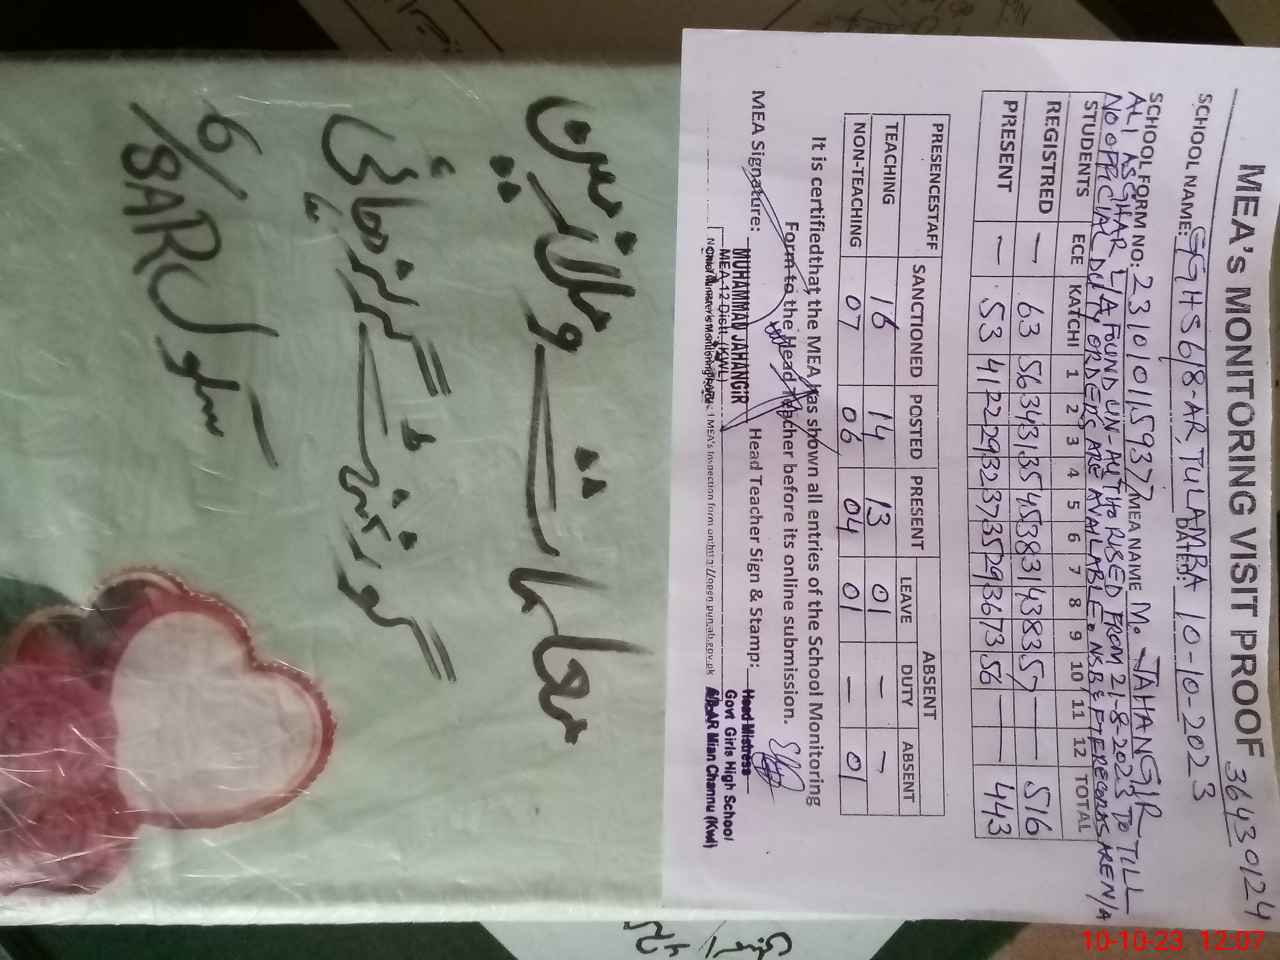 MEA's MONITORING VISIT PROOF 36430124
SCHOOL NAME: GGHS 6/8-AR TULAMBA DATED: 10-10-2023
SCHOOL FORM NO: 23101015937 MEA NAME M. JAHANGIR
ALI ASGHAR L/A FOUND UN-AUTHORISED FROM 21-8-2023 TO TILL
NO OFFICIAL ORDERS ARE AVAILABLE. NSB & FTF RECORDS ARE N/A
STUDENTS ECE KATCHI 1 2 3 4 5 6 7 8 9 10 11 12 TOTAL
REGISTRED — 63 56 34 31 35 45 38 31 43 83 57 — — 516
PRESENT — 53 41 22 29 32 37 35 29 36 73 56 — — 443
PRESENCESTAFF SANCTIONED POSTED PRESENT ABSENT
LEAVE DUTY ABSENT
TEACHING 16 14 13 01 — —
NON-TEACHING 07 06 04 01 — 01
It is certifiedthat the MEA has shown all entries of the School Monitoring
Form to the Head Teacher before its online submission.
MEA Signature: Head Teacher Sign & Stamp:
MUHAMMAD JAHANGIR
MEA-12 Distt. (KWL)
Head Mistress
Govt Girls High School
6/8-AR Mian Channu (Kwl)
معاملات و ملازمین
گورنمنٹ گرلز ہائی
سکول 6/8AR
10-10-23 12:07